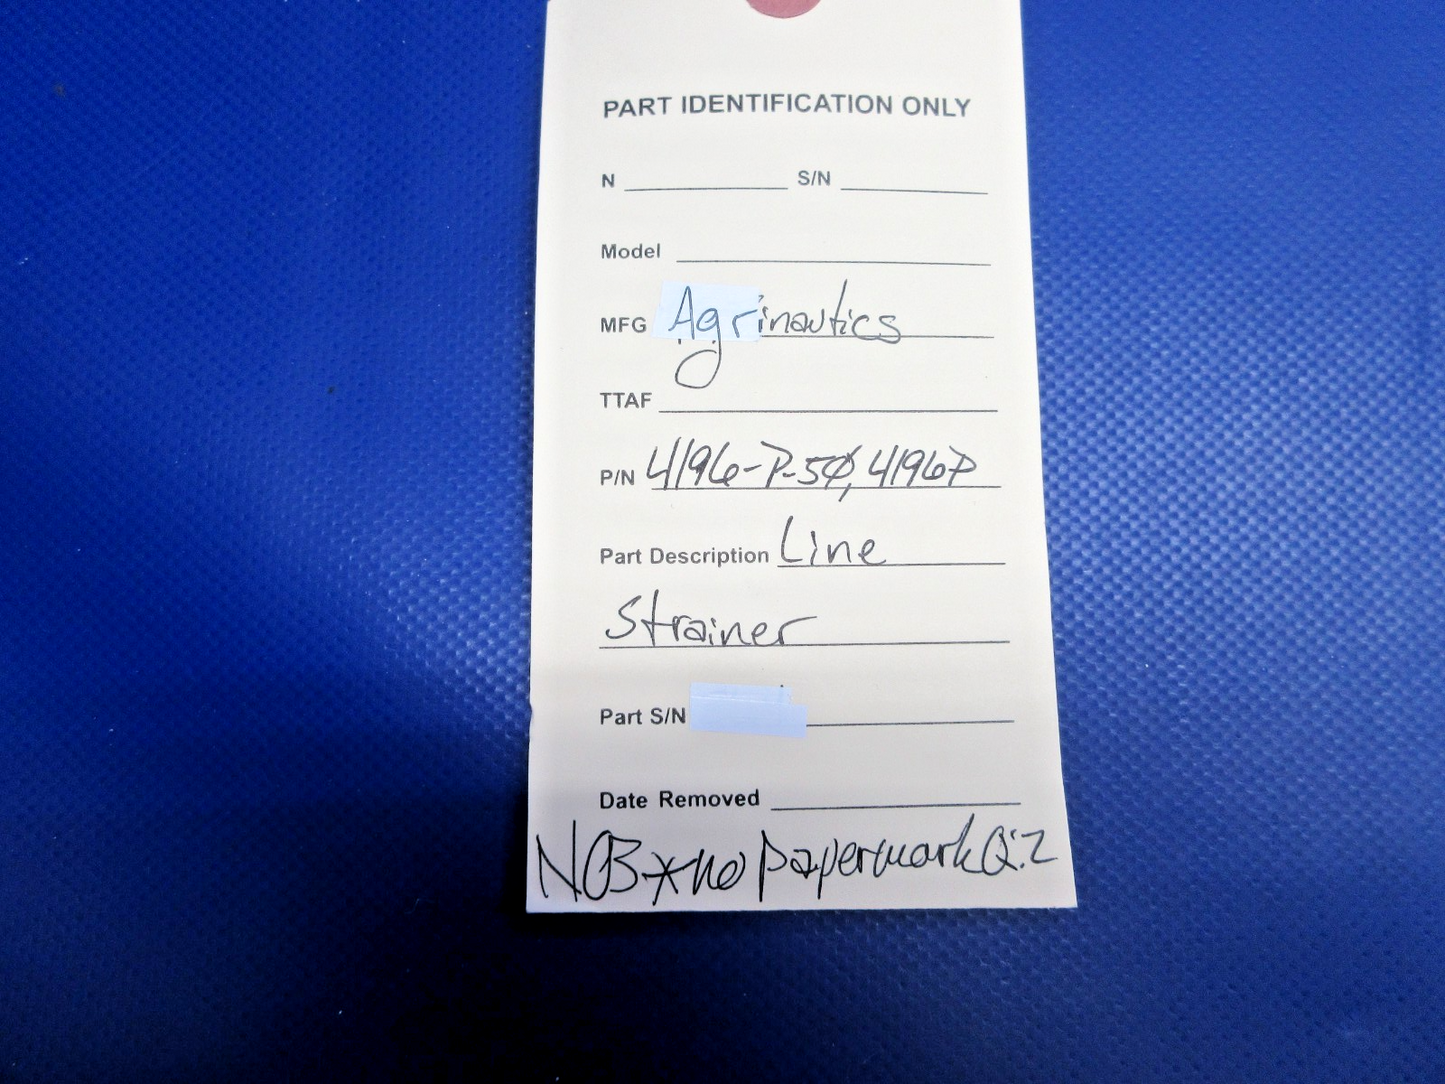 PART IDENTIFICATION ONLY
N S/N
Model
MFG Agrinautics
TTAF
P/N 4196-P-50, 4196P
Part Description Line
Strainer
Part S/N
Date Removed
NOB*no papermark Q:2